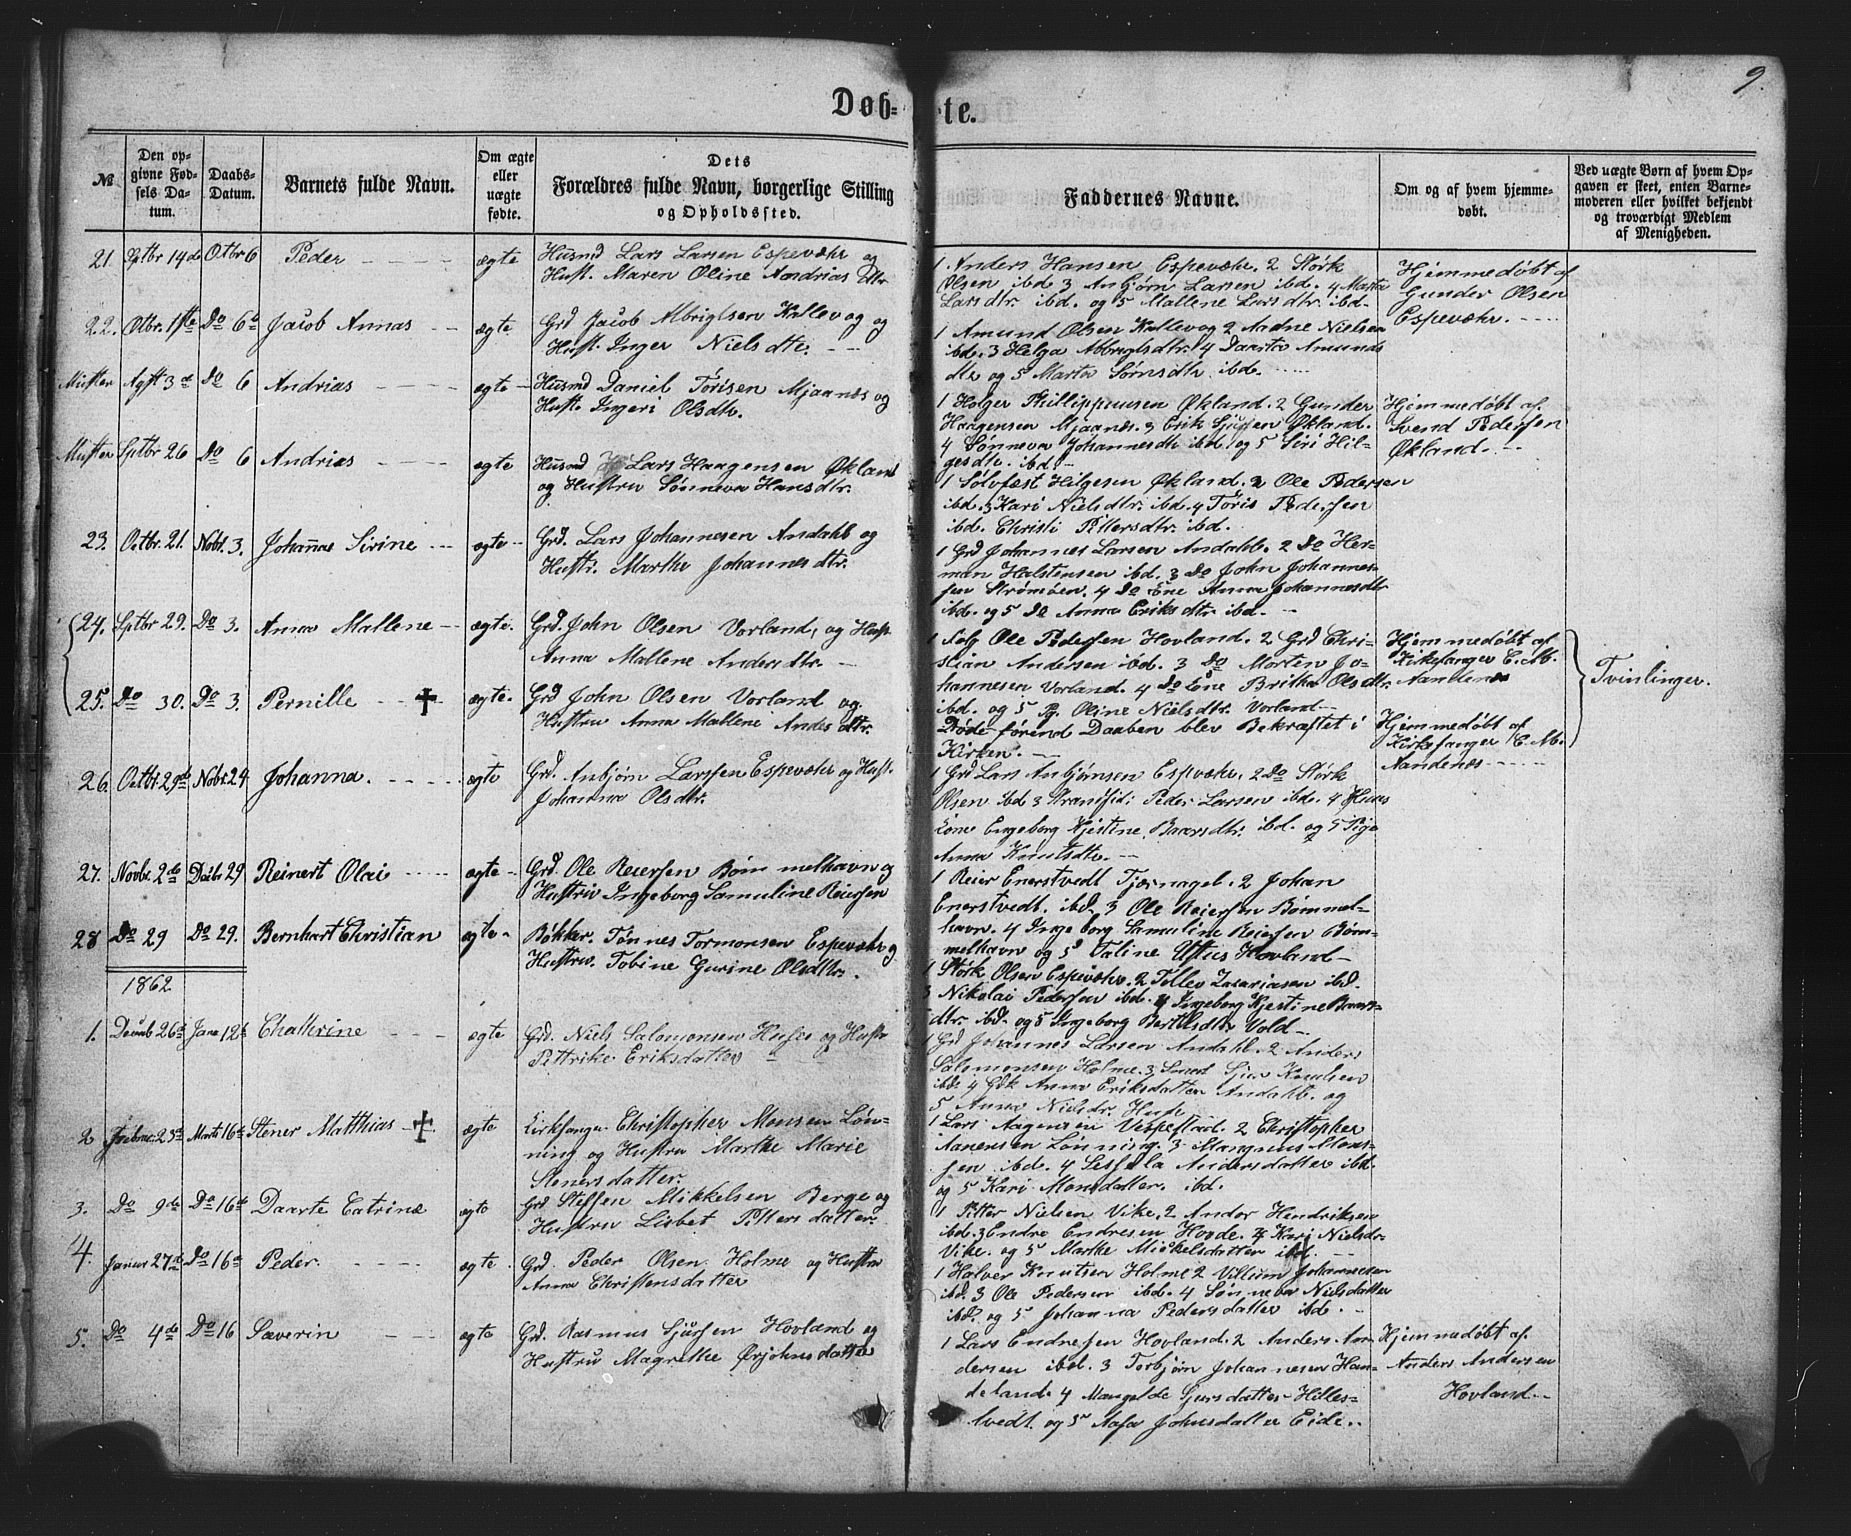 9.
Døb-te.
№
Den opgivne Fødsels Datum.
Daabs-Datum.
Barnets fulde Navn.
Om ægte eller uægte fødte.
Dets Forældres fulde Navn, borgerlige Stilling og Opholdssted.
Faddernes Navne.
Om og af hvem hjemmedøbt.
Ved uægte Børn af hvem Opgaven er skeet, enten Barnemoderen eller hvilket bekjendt og troværdigt Medlem af Menigheden.
21. Sptbr 14de Otbr 6 Peder ægte
Husmd Lars Larsen Espevæhr og
Hust. Maren Oline Andrias Dtr
1 Anders Hansen Espevæhr. 2 Størk
Olsen ibd 3 Anbjørn Larsen ibd. 4 Marta
Larsdtr. ibd. og 5 Mallene Larsdtr. ibd.
Hjemmedøbt af
Gunder Olsen
Espevæhr.
22. Otbr. 1ste Do 6 Jacob Annas ægte
Grd Jacob Albrigtsen Kallevog og
Hust. Inger Nielsdtr.
1 Amund Olsen Kallevog 2 Aadne Nielsen
ibd. 3 Helga Albrigtsdtr. 4 Daarta Amunds
dtr og 5 Marta Sørnsdtr ibd.
Muster Agst 3de Do 6 Andrias ægte
Husmd Daniel Tørisen Mjaanæs og
Hust. Ingeri Olsdtr.
1 Holger Phillippusen Økland. 2 Gunder
Haagensen Mjaanæs. 3 Erik Sjursen Økland.
4 Sønneva Johannesdtr ibd. og 5 Siri Hil-
gesdtr. ibd.
Hjemmedøbt af
Svend Pedersen
Økland.
Muster Sptbr 26 Do 6 Andrias ægte
Husmd Lars Haagensen Økland
og Hustru Sønneva Hansdtr.
1 Sølvfæst Hilgesen Økland. 2 Ole Pedersen
ibd. 3 Kari Nielsdtr. ibd. 4 Töris Pedersen
ibd. Christi Pittersdtr. ibd.
23. Octbr. 21. Nobr. 3. Johannas Sirine ægte
Grd. Lars Johannesen Andahl og
Hustr. Martha Johannesdtr.
1 Grd Johannes Larsen Andahl. 2 Do Her-
man Halstensen ibd. 3 Do John Johannes-
sen Strømøen. 4 Do Ene Anna Johannesdtr
ibd. og 5 Do Anna Eriksdtr ibd.
24. Sptbr 29. Do 3. Anna Mallene ægte.
Grd. John Olsen Vorland, og Hust.
Anna Mallene Andersdtr.
1 Ole Pedersen Hovland. 2 Grd Chri-
stian Andersen ibd. 3 Do Morten Jo-
hannesen Vorland. 4 Do Ene Britha Olsdtr.
ibd. og 5 Pg. Oline Nielsdtr. Vorland
Hjemmedøbt af
Kirkesanger C. M.
Nandenæs
Tvinlinger.
25. Do 30. Do 3. Pernille † ægte.
Grd John Olsen Vorland og
Hustru Anna Mallene Andes dtr.
Døde førind Daaben blev Bekræftet i
Kirken.
Hjemmedøbt af
Kirkesanger C. M.
Nandenæs
26. Octbr. 29de Nobr 24 Johanna. ægte
Grd. Anbjørn Larssen Espevæhr og Hust.
Johanna Olsdtr.
1 Grd Lars Anbjørnsen Espevæhr. 2 Do Størk
Olsen ibd 3 Strandsid: Peder Larsen ibd. 4
Kone Engeborg Kjestine Baarsdtr. ibd. og 5 Pige
Anna Knutsdtr.
27. Novbr. 2de Decbr 29 Reinert Olai ægte
Grd. Ole Reiersen Bømmelhavn og
Hustru Ingeborg Samuline Reiersen
1 Reier Enerstvedt Tjærnagel. 2 Johan
Enerstvedt. ibd. 3 Ole Reiersen Bømmel-
havn. 4 Ingeborg Samuline Reiersen Bøm-
melhavn og 5 Taline Ustus Hovland
28 Do 29 Do 29. Bernhart Christian ægte
Bøkker. Tønnes Tormonsen Espevæhr og
Hustru. Tobine Gurine Olsdtr.
1 Størk Olsen Espevæhr. 2 Tollev Zacariasen ibd.
3 Nikolai Pedersen ibd. 4 Ingeborg Kjestine Baars-
dtr. ibd. og 5 Ingeborg Bertelsdtr Vold
1862
1. Decemb 26de Janu 12te Chathrine ægte
Grd. Niels Salomonsen Huse og Hustr
Pittrike Eriksdatter
1 Grd Johannes Larsen Andahl. 2 Anders
Salomonsen Holme. 3 Sjur Knutsen
ibd. 4 Gdk Anna Eriksdatter Andahl. og
5 Anna Nielsdr. Huse
2 Marts 16de Stener Matthias † ægte
Kirksanger Christopher Monsen Løn-
ning og Hustru Marthe Marie
Stenersdatter.
1 Lars Aagensen Vespestad. 2 Christopher
Aanensen Lønning. 3 Mangnus Mons-
sen ibd. 4 Andersdatter ibd.
og 5 Kari Monsdatter. ibd.
3. Do 9de Do 16de Daarte Catrine ægte
Grd Steffen Mikkelsen Berge og
Hustru Lisbet Pittersdatter.
1 Pitter Nielsen Vike. 2 Andor Hendriksen
ibd. 3 Endre Endresen Hovde. 4 Kari Nielsdr
Vike. og 5 Marthe Mickelsdatter ibd.
4. Januar 27de Do 16de Peder. ægte
Grd Peder Olsen Holme og Hustru
Anna Christensdatter
1 Halver Knutsen Holme 2 Villum Johannesen
ibd. 3 Ole Pedersen ibd. 4 Sønneva Nielsdatter
ibd. og 5 Johanna Pedersdatter ibd.
5. Do 4de Do 16 Saverin ægte
Grd. Rasmus Sjursen Hovland og
Hustru Magrethe Ørjohnsdatter
1 Lars Endresen Hovland. 2 Anders An-
dersen ibd. 3 Torbjørn Johannesen Han-
deland. 4 Mangelde Sjursdatter Hilles-
tvedt og 5 Aasa Johnsdatter Eide.
Hjemmedøbt af
Anders Andersen
Hovland